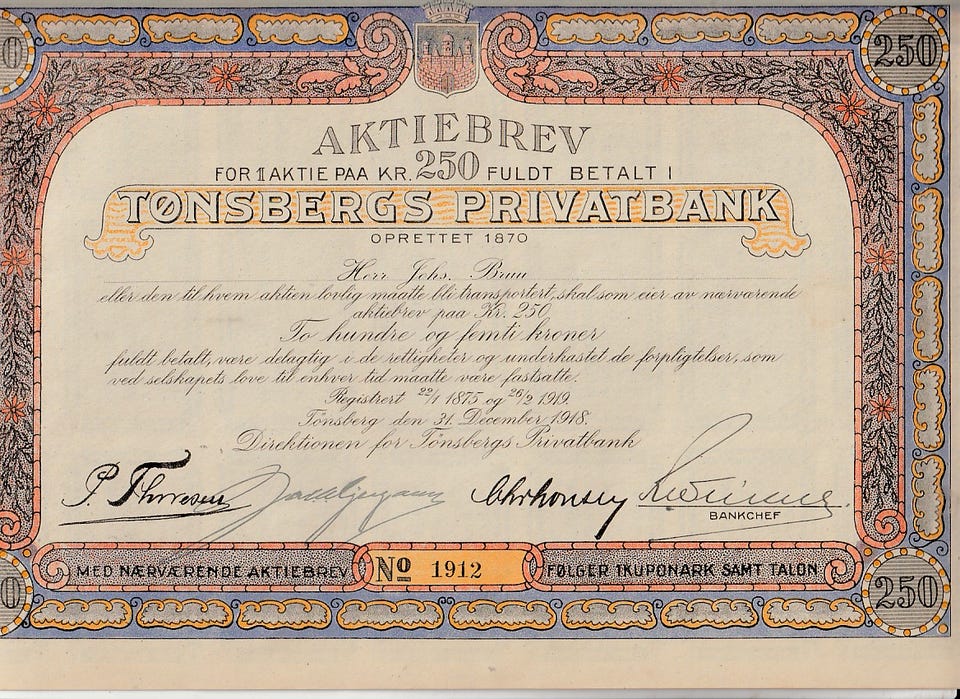 250
AKTIEBREV
FOR 1 AKTIE PAA KR. 250 FULDT BETALT I
TØNSBERGS PRIVATBANK
OPRETTET 1870
Herr Johs. Bruu
eller den til hvem aktien lovlig maatte bli transportert, skal som eier av nærværende
aktiebrev paa Kr. 250
To hundre og femti kroner
fuldt betalt, være delagtig i de rettigheter og underkastet de forpligtelser, som
ved selskapets love til enhver tid maatte være fastsatte.
Registrert 22/1 1875 og 26/2 1919.
Tønsberg den 31. December 1918.
Direktionen for Tønsbergs Privatbank
BANKCHEF
MED NÆRVÆRENDE AKTIEBREV
No 1912
FØLGER 1 KUPONARK SAMT TALON
250